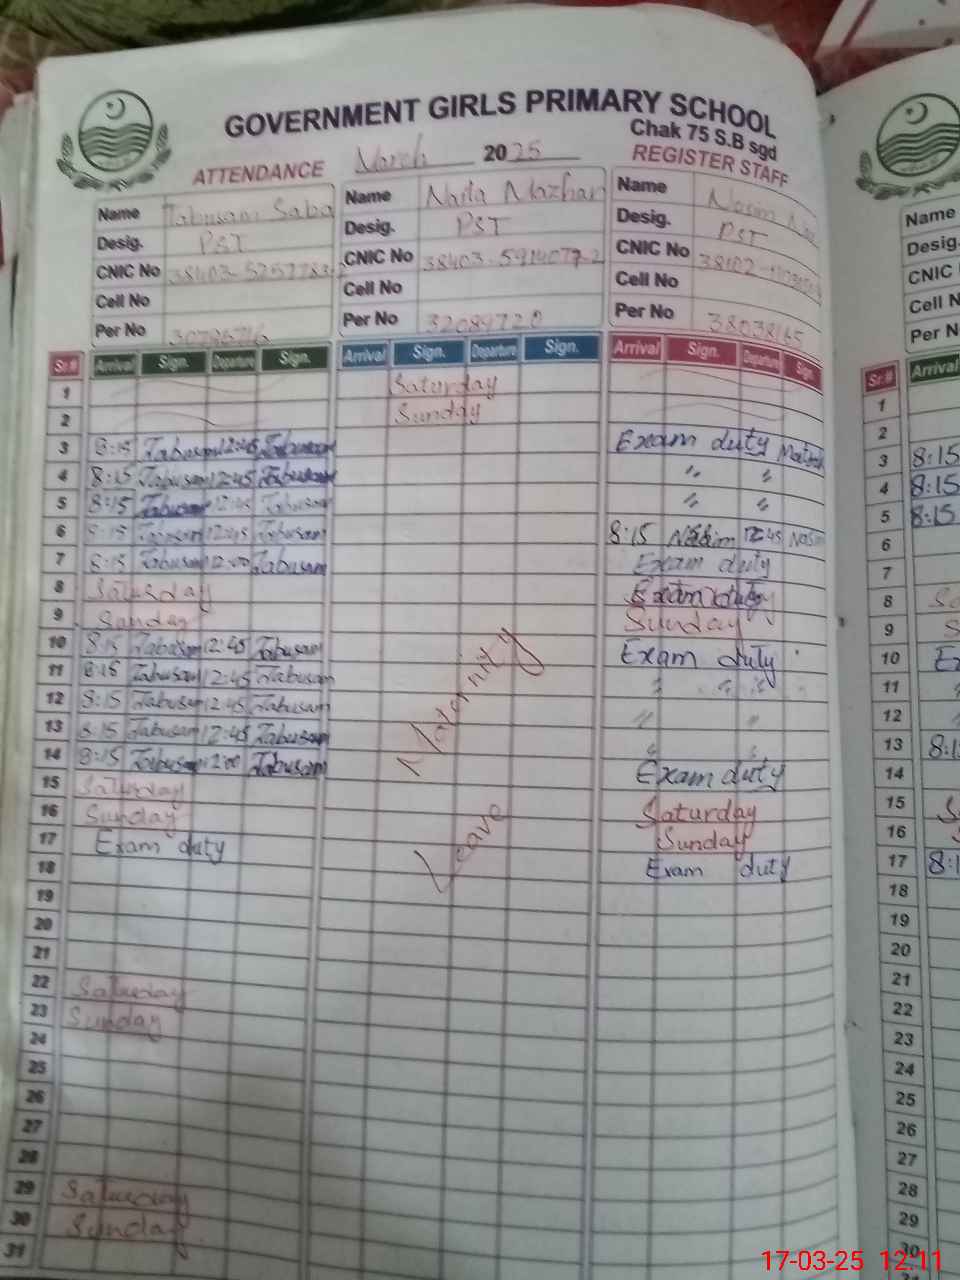 GOVERNMENT GIRLS PRIMARY SCHOOL
Chak 75 S.B sgd
ATTENDANCE March 2025 REGISTER STAFF
Name Tabusam Saba Name Naila Mazhar Name Nasim
Desig. PST Desig. PST Desig. PST
CNIC No CNIC No CNIC No
Cell No Cell No Cell No
Per No Per No 32089720 Per No 38038165
Sr.# Arrival Sign. Departure Sign. Arrival Sign. Departure Sign. Arrival Sign. Departure Sign.
1 Saturday
2 Sunday
3 8:15 Tabusam 12:45 Tabusam Exam duty
4 8:15 Tabusam 12:45 Tabusam " "
5 8:15 Tabusam 12:45 Tabusam " "
6 8:15 Tabusam 12:45 Tabusam 8:15 Nasim 12:45 Nasim
7 8:15 Tabusam 12:00 Tabusam Exam duty
8 Saturday Exam duty
9 Sunday Sunday
10 8:15 Tabusam 12:45 Tabusam Exam duty
11 8:15 Tabusam 12:45 Tabusam " "
12 8:15 Tabusam 12:45 Tabusam " "
13 8:15 Tabusam 12:45 Tabusam " "
14 8:15 Tabusam 12:00 Tabusam Exam duty
15 Saturday Saturday
16 Sunday Sunday
17 Exam duty Exam duty
18
19
20
21
22 Saturday
23 Sunday
24
25
26
27
28
29 Saturday
30 Sunday
31
Maternity
Leave
Name
Desig.
CNIC
Cell N
Per N
Sr.# Arrival
1
2
3 8:15
4 8:15
5 8:15
6
7
8 Sa
9 S
10 Ex
11
12
13 8:1
14
15 Sa
16 S
17 8:1
18
19
20
21
22
23
24
25
26
27
28
29
30
17-03-25 12:11